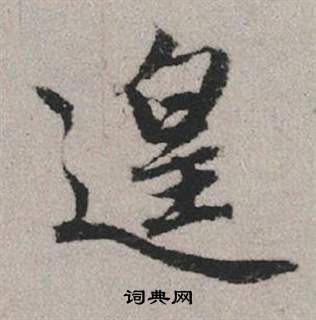 遑
词典网